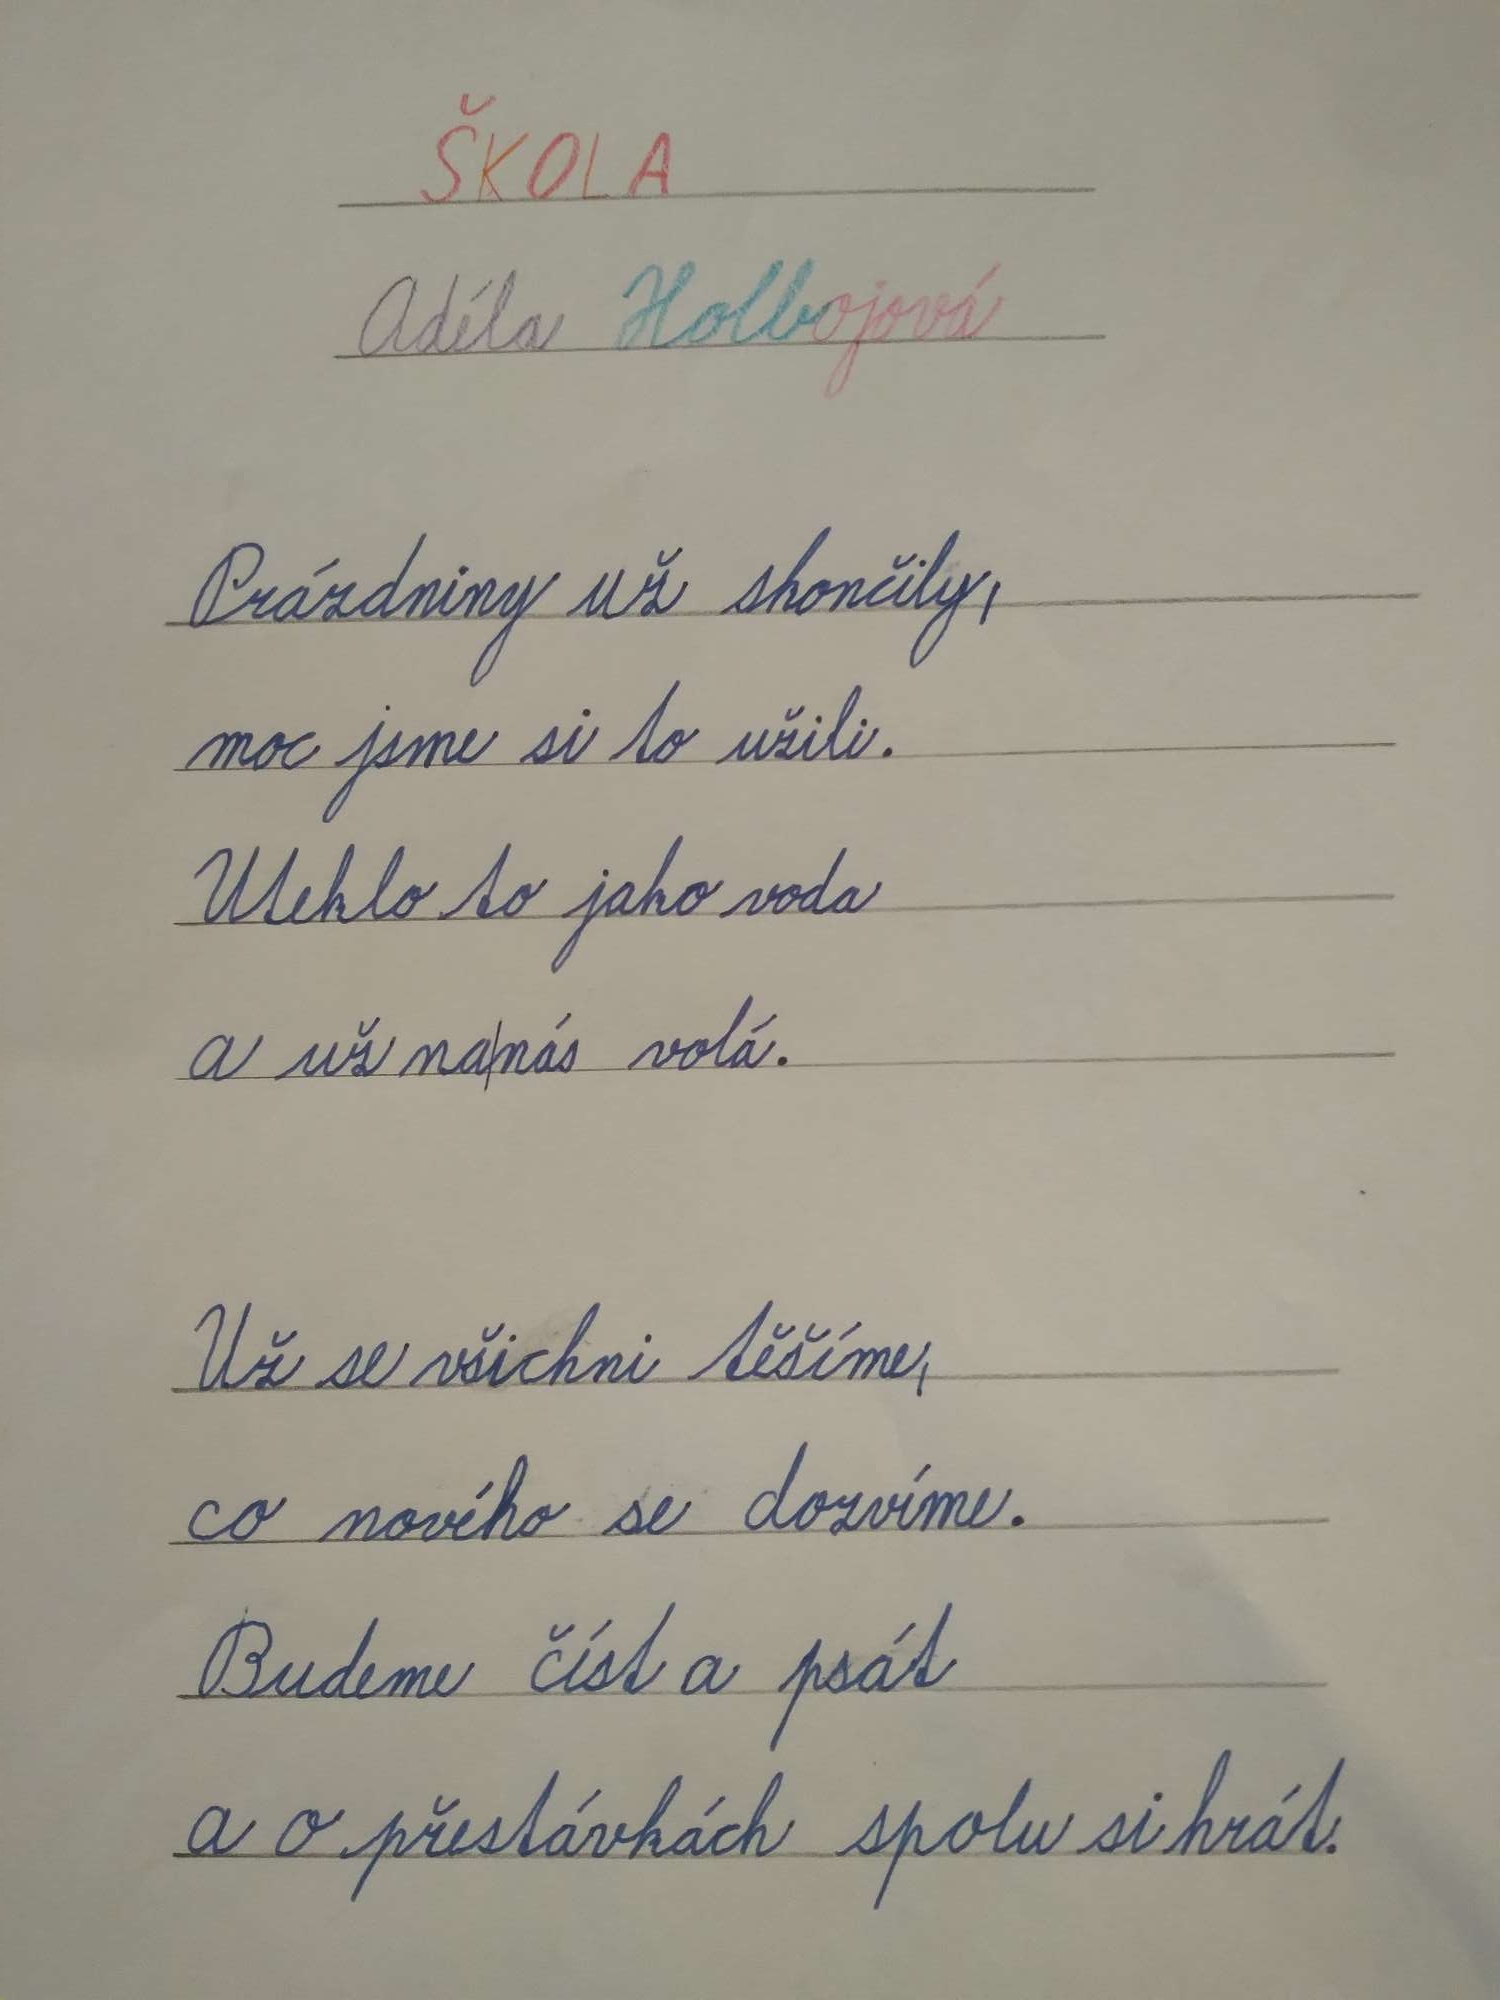 ŠKOLA
Adéla Holbojová
Prázdniny už skončily,
moc jsme si to užili.
Uteklo to jako voda
a už na|nás volá.
Už se všichni těšíme,
co nového se dozvíme.
Budeme číst a psát
a o přestávkách spolu si hrát.